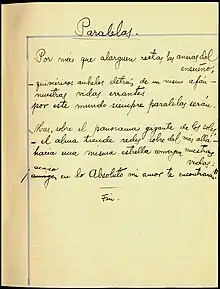 Paralelas.
Por más que alarguen rectas las ansias del
ensueño,
quiméricos anhelos detrás de un mismo afán
nuestras vidas errantes
por este mundo siempre paralelas serán.
Mas, sobre el panorama gigante de los soles,
el alma tiende redes sobre del más allá
hacia una misma estrella convergen nuestras
vidas:
acaso
en lo Absoluto mi amor te encontrará
Fin.